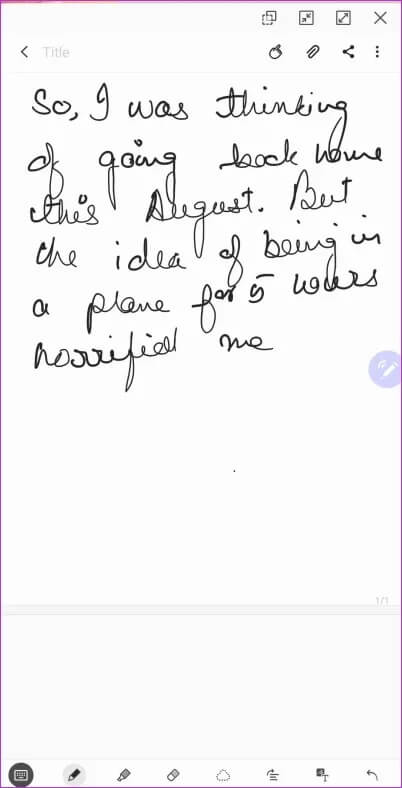 Title
So, I was thinking
of going back home
this August. But
the idea of being in
a plane for 5 hours
horrified me
1/1